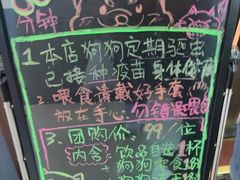 分钟
1 本店狗狗定期驱虫
已接种疫苗 身体健
2. 喂食请戴好手套
放在手心 勿错误喂食
3. 团购价: 99/位
内含: 饮品自选1杯
狗狗零食1份
狗狗